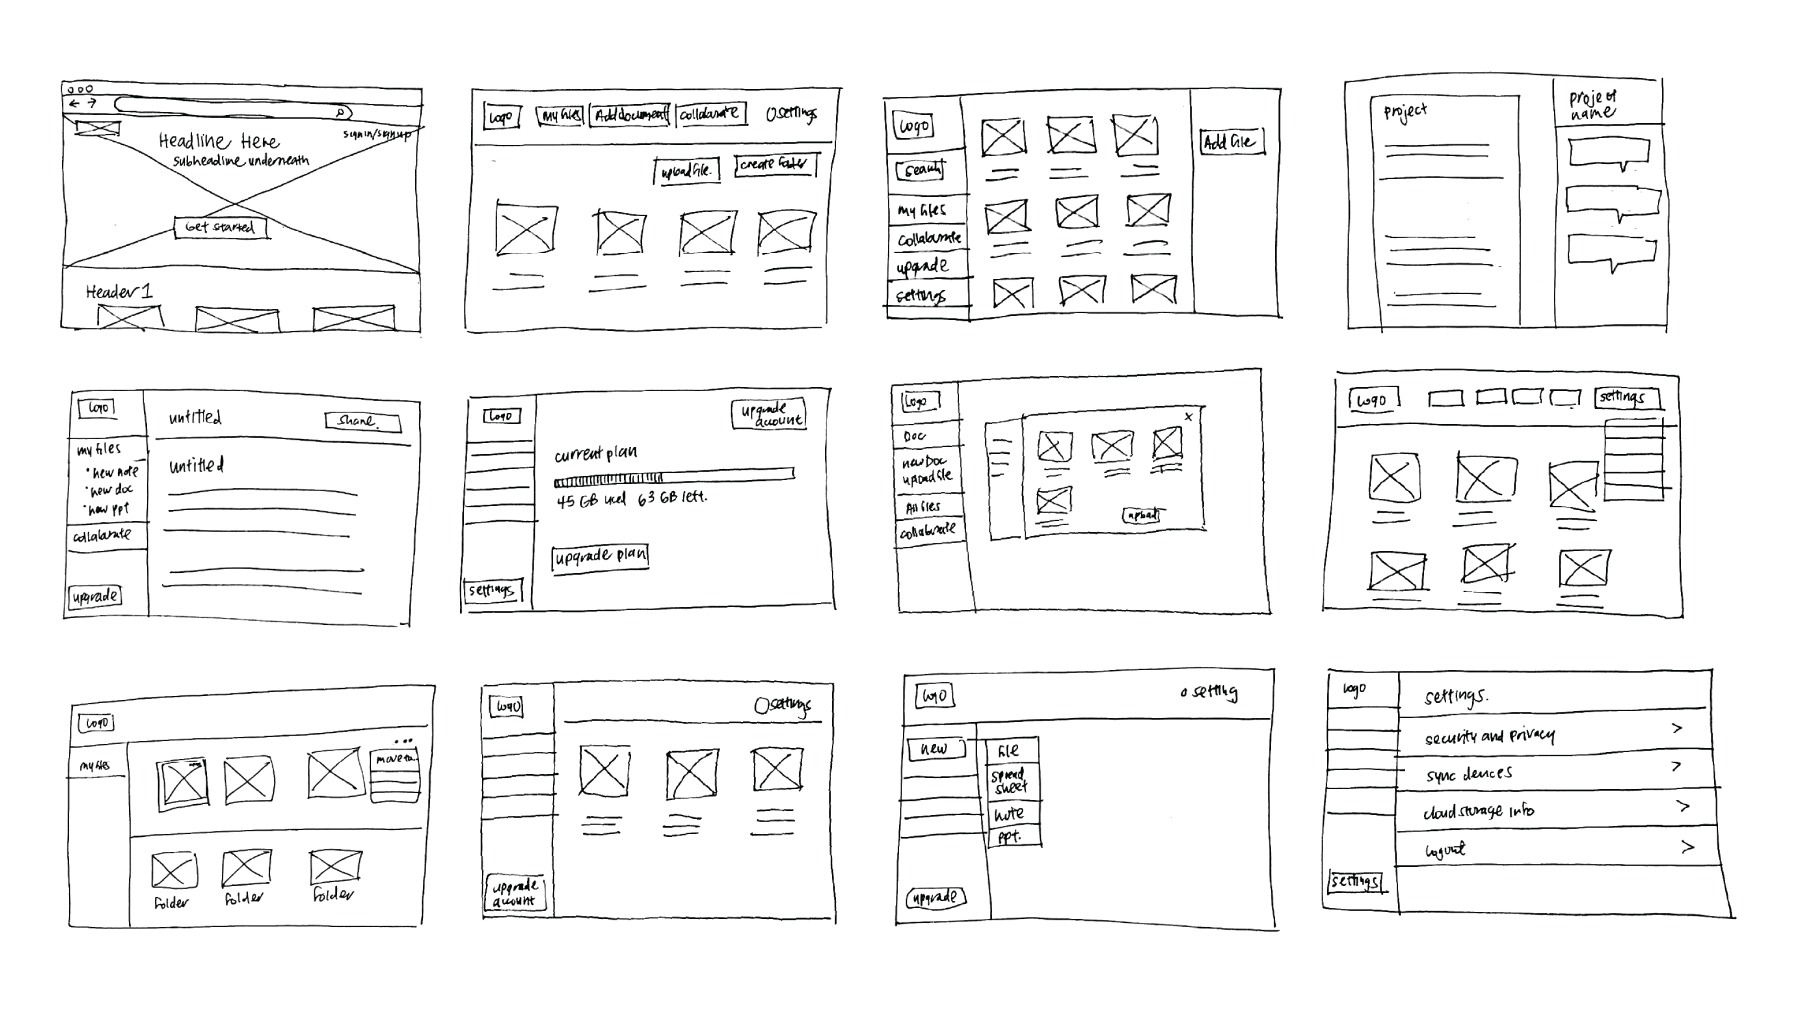 Headline Here
signin/signup
subheadline underneath
Get started
Header 1
logo
My files
Add document
collaborate
settings
upload file.
create folder
logo
search
my files
collaborate
upgrade
settings
Add file
project
project name
logo
my files
• new note
• new doc
• new ppt
collaborate
upgrade
untitled
share.
untitled
logo
settings
upgrade
account
current plan
45 GB used 63 GB left.
upgrade plan
logo
Doc
new Doc
upload file
All files
collaborate
x
upload
logo
settings
logo
my files
move to
folder
folder
folder
logo
settings
upgrade
account
logo
setting
new
file
spread
sheet
note
ppt.
upgrade
logo
settings
settings.
security and privacy >
sync devices >
cloud storage info >
logout >